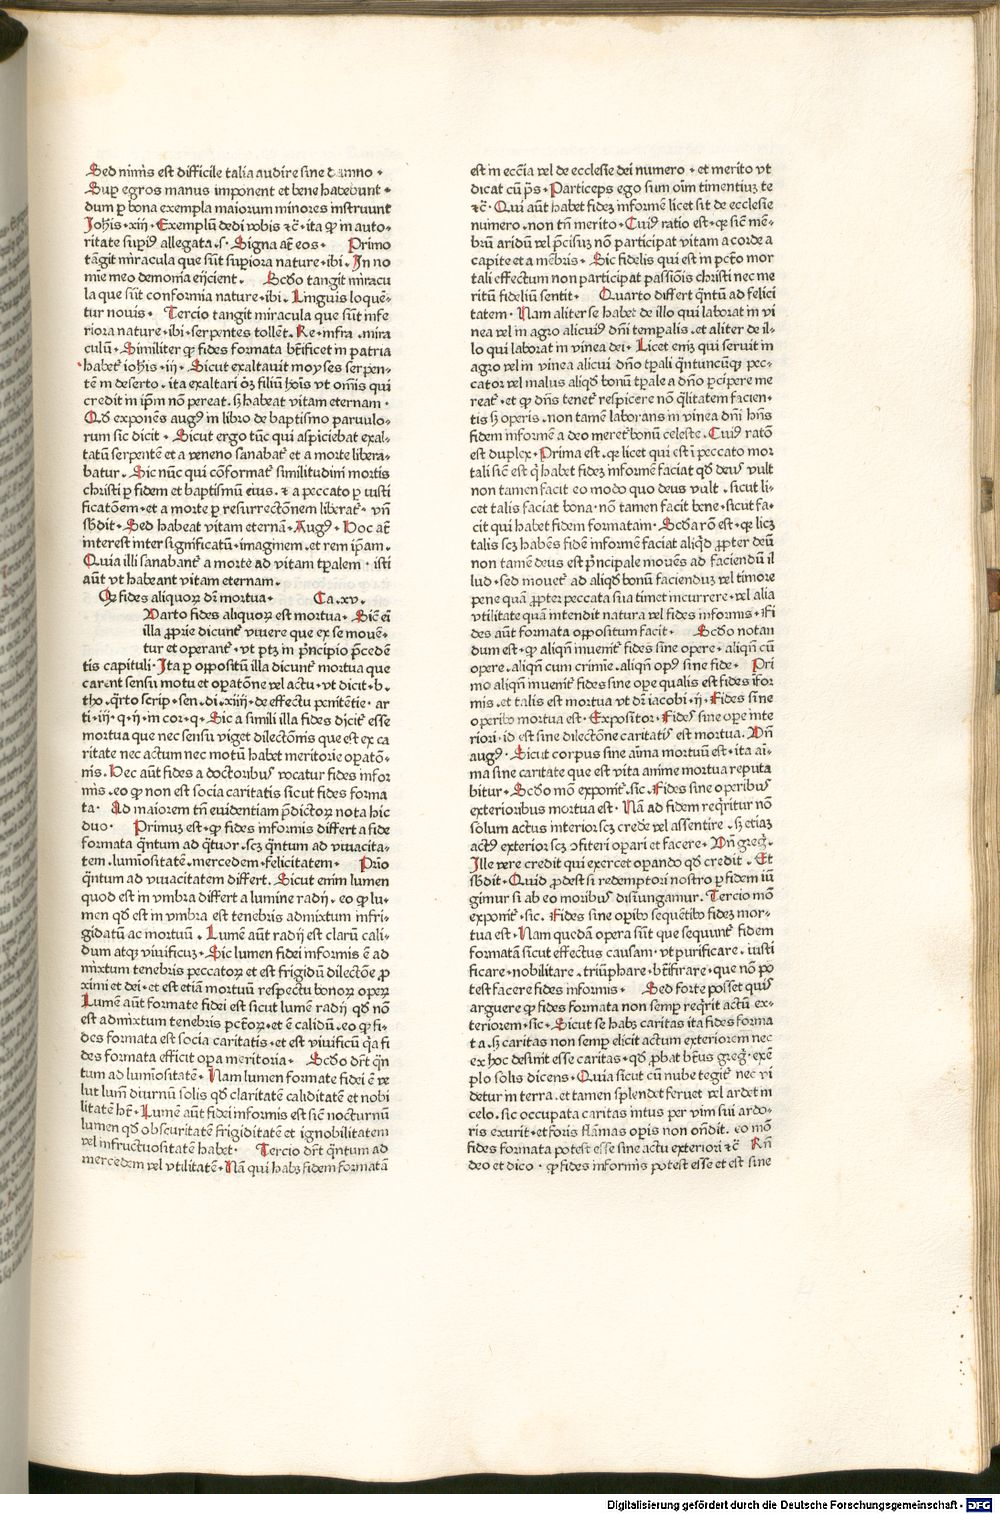 Sed nimis est difficile talia audire sine damno .
Sup̱ egros manus imponent et bene habebunt .
dum ꝑ bona exempla maiorum minores instruunt
Johis . xiij . Exemplū dedi vobis ⁊c̄ . ita ꝙ in auto-
ritate supiꝰ allegata . s . Signa at̄ eos . Primo
tāgit miracula que sūt sup̱iora nature . ibi . In no
mie meo demonia eijcient . Scd̄o tangit miracu
la que sūt conformia nature . ibi . Linguis loquē-
tur nouis . Tercio tangit miracula que sūt infe
riora nature . ibi . serpentes tollēt . Re . infra . mira
culū . Similiter ꝙ fides formata bt̄ificet in patria
habet᷑ iohis . iij . Sicut exaltauit moyses serpen-
tē in deserto . ita exaltari oꝫ filiū hoīs vt omīs qui
credit in ip̄m nō pereat . sꝫ habeat vitam eternam .
Qd̄ exponēs augꝰ in libro de baptismo paruulo-
rum sic dicit . Sicut ergo tūc qui aspiciebat exal-
tatū serpentē et a veneno sanabat᷑ et a morte libera-
batur . Sic nūc qui cōformat᷑ similitudini mortis
christi ꝑ fidem et baptismū eius . ⁊ a peccato ꝑ iusti
ficatōem . et a morte ꝑ resurrectōnem liberat᷑ . vn̄
sb̄dit . Sed habeat vitam eternā . Augꝰ . Hoc at̄
interest inter significatū . imaginem . et rem ip̄am .
Quia illi sanabant᷑ a morte ad vitam tp̄alem . isti
aūt vt habeant vitam eternam .
Qꝫ fides aliquoꝝ dr̄ mortua . Ca . xv .
Varto fides aliquoꝝ est mortua . Sic̄ ei
illa ꝓprie dicunt᷑ viuere que ex se mouē-
tur et operant᷑ . vt ptꝫ in p̄ncipio p̄cedē
tis capituli . Ita ꝑ oppositū illa dicunt᷑ mortua que
carent sensu motu et op̱atōne vel actu . vt dicit . b .
tho . q̄rto scrip . sen . di . xiiij . de effectu penitentie . ar
ti . iij . q . ij . in cor . q . Sic a simili illa fides dicit᷑ esse
mortua que nec sensu viget dilectōnis que est ex ca
ritate nec actum nec motū habet meritorie op̱atō-
nis . Hec aūt fides a doctoribꝰ vocatur fides infor
mis . eo ꝙ non est socia caritatis sicut fides forma
ta . Ad maiorem tn̄ euidentiam p̄dictoꝝ nota hic
duo . Primuꝫ est . ꝙ fides informis differt a fide
formata q̄ntum ad q̄tuor . scꝫ q̄ntum ad viuacita-
tem . luminositatē . mercedem . felicitatem . Prīo
q̄ntum ad viuacitatem differt . Sicut enim lumen
quod est in vmbra differt a lumine radij . eo ꝙ lu-
men qd̄ est in vmbra est tenebris admixtum infri-
gidatū ac mortuū . Lumē aūt radij est clarū cali-
dum atqꝫ viuificuꝫ . Sic lumen fidei informis ē ad
mixtum tenebris peccatoꝝ et est frigidū dilectōne ꝓ
ximi et dei . et est etiā mortuū respectu bonoꝝ op̱eꝝ
Lumē aūt formate fidei est sicut lumē radij qd̄ nō
est admixtum tenebris pctōꝝ . et ē calidū . eo ꝙ fi-
des formata est socia caritatis . et est viuificū q̄a fi
des formata efficit op̱a meritoria . Scd̄o dr̄t q̄n
tum ad luminositatē . Nam lumen formate fidei ē ve
lut lum̄ diurnū solis qd̄ claritatē caliditatē et nobi
litatē ht̄ . Lumē aūt fidei informis est sic̄ nocturnū
lumen qd̄ obscuritatē frigiditatē et ignobilitatem
vel infructuositatē habet . Tercio dr̄t q̄ntum ad
mercedem vel vtilitatē . Nā qui habꝫ fidem formatā
est in ecc̄ia vel de ecclesie dei numero . et merito vt
dicat cū ꝓs . Particeps ego sum oīm timentiuꝫ te
⁊c̄ . Qui aūt habet fideꝫ informē licet sit de ecclesie
numero . non tn̄ merito . Cuiꝰ ratio est . qꝫ sic̄ mē-
brū aridū vel p̄cisuꝫ nō participat vitam a corde a
capite et a mēbris . Sic fidelis qui est in pctō mor
tali effectum non participat passiōis christi nec me
ritū fideliū sentit . Quarto differt q̄ntū ad felici
tatem . Nam aliter se habet de illo qui laborat in vi
nea vel in agro alicuiꝰ dn̄i temp̱alis . et aliter de il-
lo qui laborat in vinea dei . Licet eniꝫ qui seruit in
agro vel in vinea alicui dn̄o tp̱ali q̄ntuncūqꝫ pec-
cator vel malus aliqd̄ bonū tp̱ale a dn̄o ꝑcipere me
reat᷑ . et ꝙ dn̄s tenet᷑ respicere nō q̄litatem facien-
tis sꝫ operis . non tamē laborans in vinea dn̄i hn̄s
fidem informē a deo meret᷑ bonū celeste . Cuiꝰ ratō
est duplex . Prima est . qꝫ licet qui est ī peccato mor
tali sic̄ est q̄ habet fideꝫ informē faciat qd̄ deus vult
non tamen facit eo modo quo deus vult . sicut li-
cet talis faciat bona . nō tamen facit bene . sicut fa-
cit qui habet fidem formatam . Scd̄a rō est . qꝫ licꝫ
talis scꝫ habēs fidē informē faciat aliqd̄ ꝓpter deū
non tamē deus est p̄ncipale mouēs ad faciendū il
lud . sed mouet᷑ ad aliqd̄ bonū faciendūꝫ vel timore
pene quā ꝓpter peccata sua timet incurrere . vel alia
vtilitate quā intendit natura vel fides informis . Fi
des aūt formata oppositum facit . Scd̄o notan
dum est . ꝙ aliqn̄ inuenit᷑ fides sine opere . aliqn̄ cū
opere . aliqn̄ cum crimīe . aliqn̄ opꝰ sine fide . Pri
mo aliqn̄ inuenit᷑ fides sine op̱e qualis est fides īfor
mis . et talis est mortua vt dr̄ iacobi . ij . Fides sine
operibo mortua est . Expositor . Fides sine op̱e inte
riori . id est sine dilectōne caritatis est mortua . Vn̄
augꝰ . Sicut corpus sine aīma mortuū est . ita ai-
ma sine caritate que est vita anime mortua reputa
bitur . Scd̄o mō exponit᷑ . sic . Fides sine operibus
exterioribus mortua est . Nā ad fidem reqrit̄ur nō
solum actus interior scꝫ crede vel assentire . sꝫ etiaꝫ
actꝰ exterior scꝫ ꝯfiteri op̱ari et facere . Vn̄ gregꝰ .
Ille vere credit qui exercet opando qd̄ credit . Et
sb̄dit . Quid ꝓdest si redemptori nostro ꝑ fidem iū
gimur si ab eo moribus disiungamur . Tercio mō
exponit᷑ . sic . Fides sine op̱ibo sequētibo fideꝫ mor-
tua est . Nam quedā opera sūt que sequunt᷑ fidem
formatā sicut effectus causam . vt purificare . iusti
ficare . nobilitare . triūphare . bt̄ificare . que nō po
test facere fides informis . Sed forte posset quis
arguere ꝙ fides formata non semp̱ reqrit actū ex-
teriorem . sic . Sicut se habꝫ caritas ita fides forma
ta . sꝫ caritas non semp̱ elicit actum exteriorem nec
ex hoc desinit esse caritas . qd̄ ꝓbat bt̄us gregꝰ . exē
plo solis dicens . Quia sicut cū nube tegit᷑ nec vi
detur in terra . et tamen splendet feruet vel ardet in
celo . sic occupata caritas intus per vim sui ardo-
ris exurit . et foris flāmas op̱is non on̄dit . eo mō
fides formata potest esse sine actu exteriori ⁊c̄ Rn̄
deo et dico . ꝙ fides informis potest esse et est sine
Digitalisierung gefördert durch die Deutsche Forschungsgemeinschaft - DFG